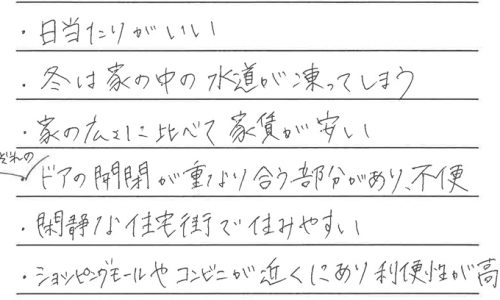 ・日当たりがいい
・冬は家の中の水道が凍ってしまう
・家の広さに比べて家賃が安い
ぞれの
・ドアの開閉が重なり合う部分があり、不便
・閑静な住宅街で住みやすい
・ショッピングモールやコンビニが近くにあり利便性が高